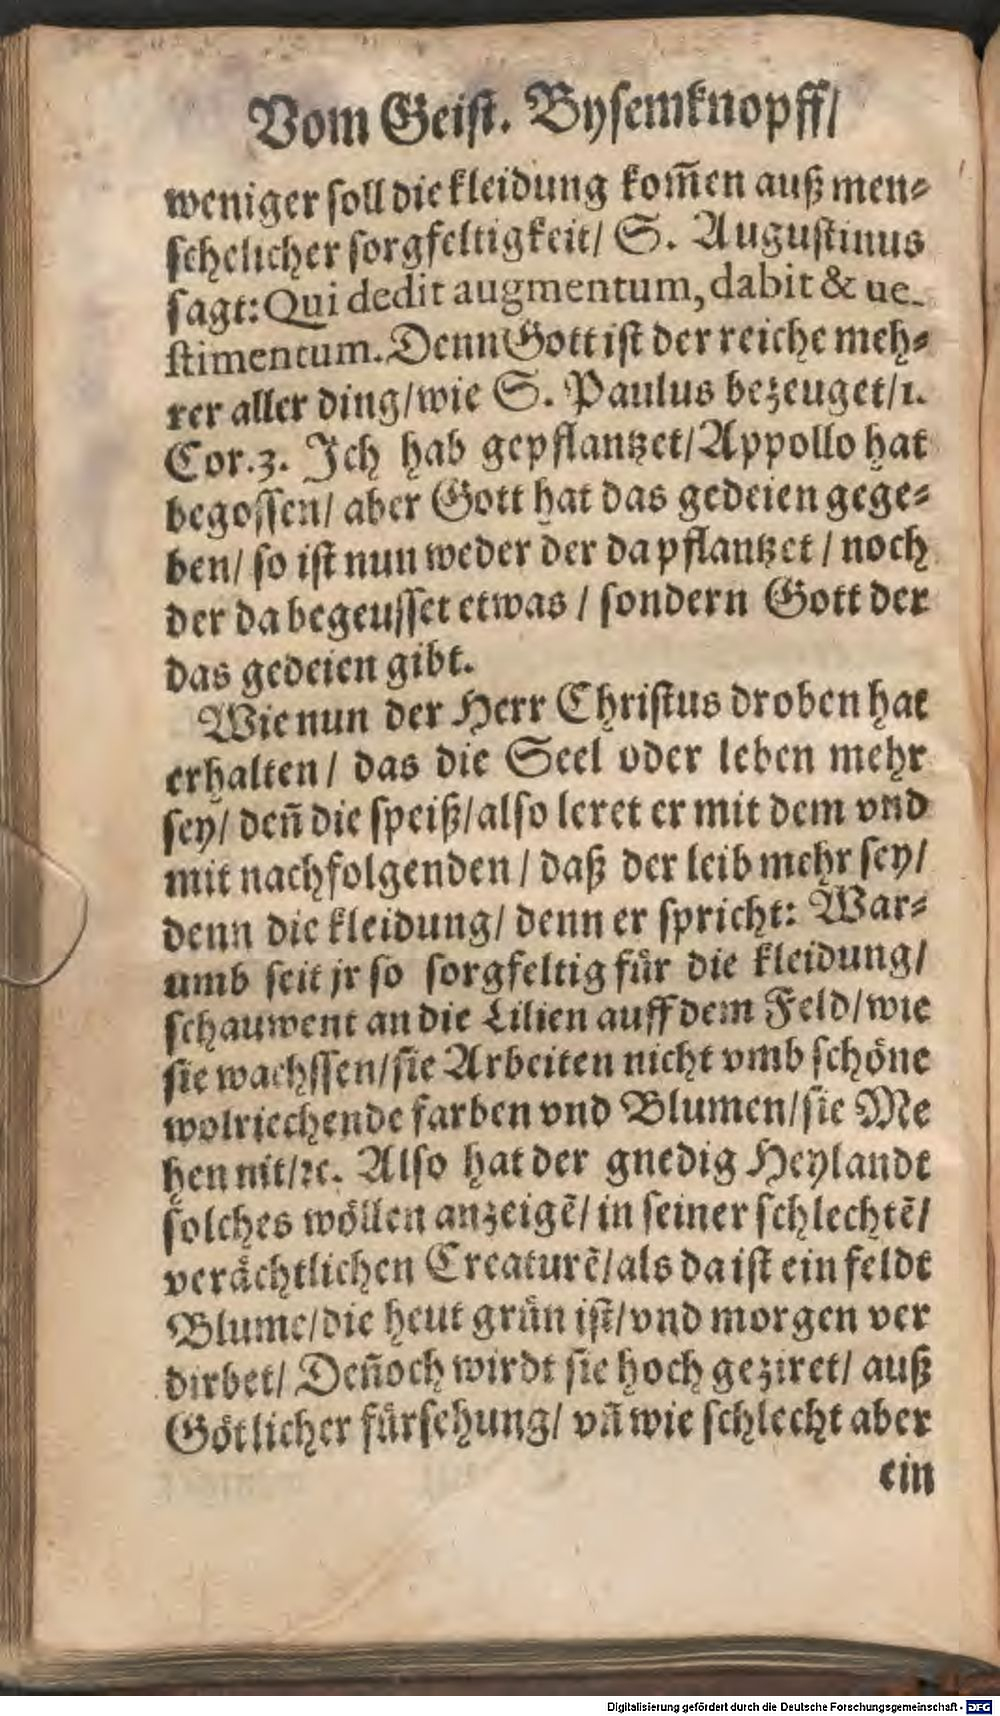 Vom Geist. Bysemknopff/
weniger soll die kleidung kom̃en auß men⸗
schelicher sorgfeltigkeit/ S. Augustinus
sagt: Qui dedit augmentum, dabit & ue-
stimentum. Denn Gott ist der reiche meh⸗
rer aller ding/wie S. Paulus bezeuget/1.
Cor.3. Ich hab gepflantzet/Appollo hat
begossen/ aber Gott hat das gedeien gege⸗
ben/ so ist nun weder der da pflantzet / noch
der da begeusset etwas / sondern Gott der
das gedeien gibt.
Wie nun der Herr Christus droben hat
erhalten / das die Seel oder leben mehr
sey/ deñ die speiß/also leret er mit dem vnd
mit nachfolgenden / daß der leib mehr sey/
denn die kleidung/ denn er spricht: War⸗
umb seit jr so sorgfeltig für die kleidung/
schauwent an die Lilien auff dem Feld/wie
sie wachssen/sie Arbeiten nicht vmb schöne
wolriechende farben vnd Blumen/sie Me
hen nit/ꝛc. Also hat der gnedig Heylandt
solches wöllen anzeigẽ/ in seiner schlechtẽ/
verächtlichen Creaturẽ/als da ist ein feldt
Blume/die heut grün ist/vnd morgen ver
dirbet/ Deñoch wirdt sie hoch geziret/ auß
Götlicher fürsehung/ vñ wie schlecht aber
ein
Digitalisierung gefördert durch die Deutsche Forschungsgemeinschaft - DFG